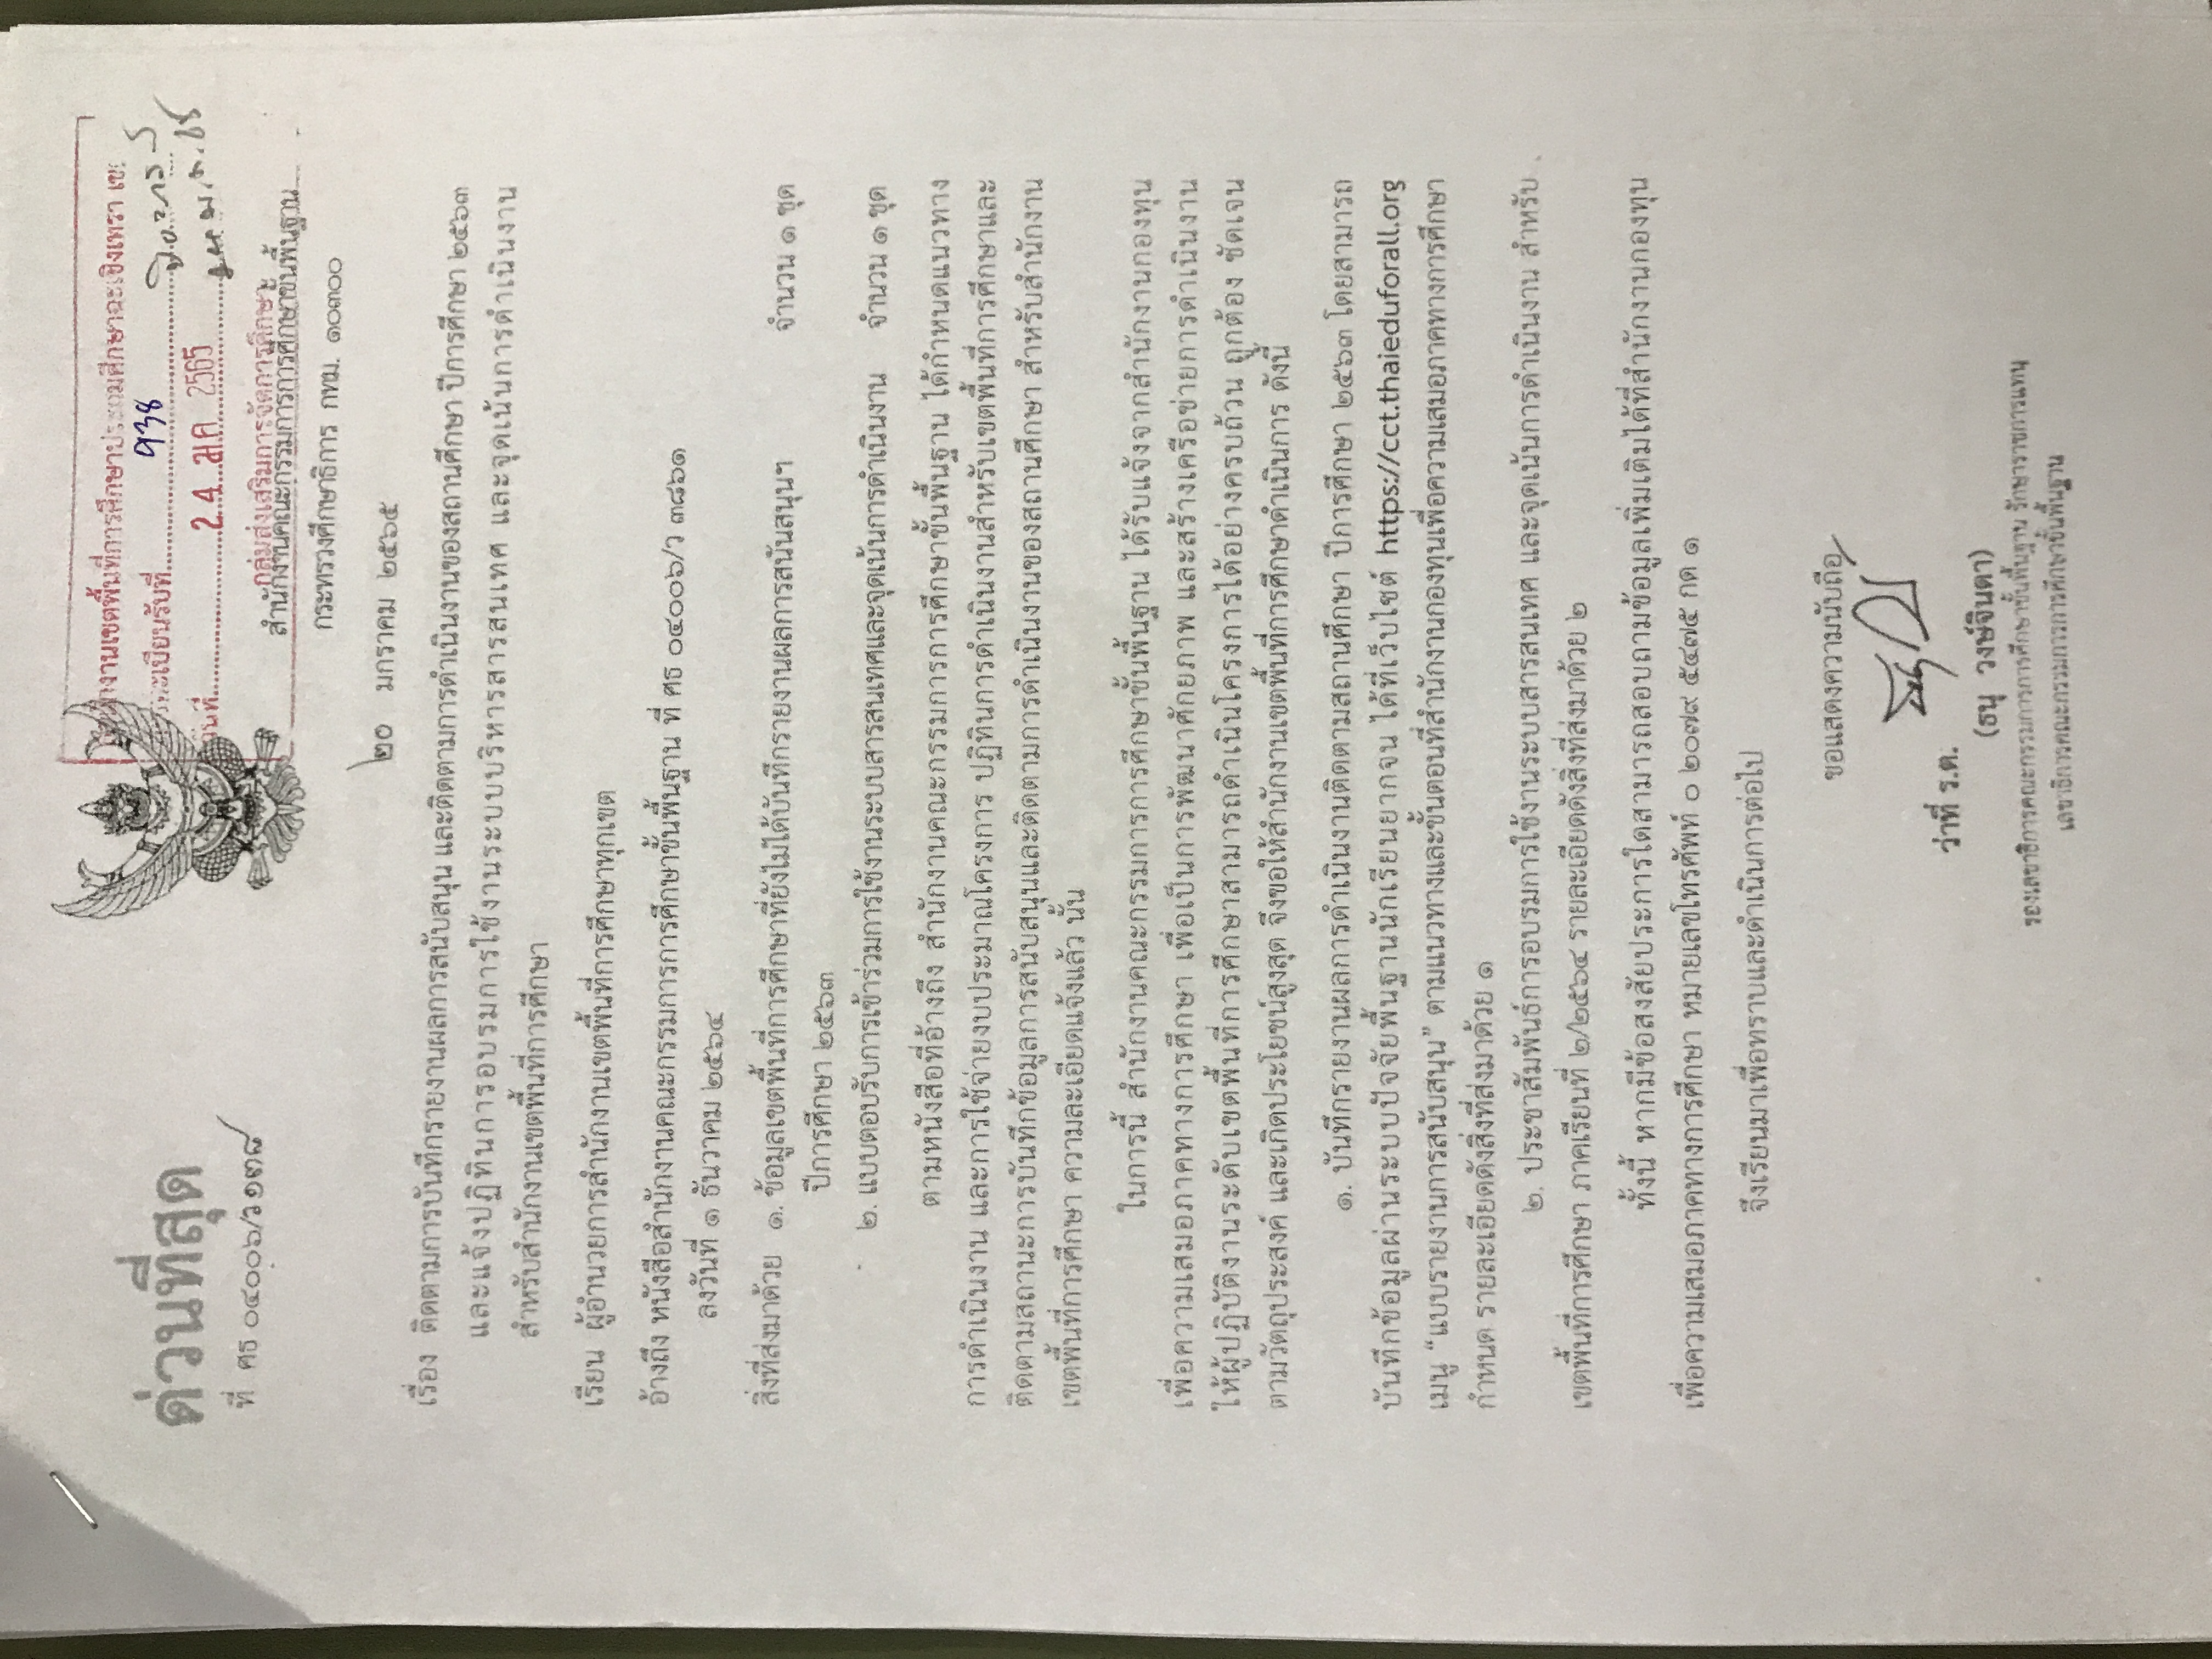 ด่วนที่สุด
ที่ ศธ ๐๔๐๐๖/ว ๑๓๘
งานเขตพื้นที่การศึกษาประถมศึกษาฉะเชิงเทรา เข
ทะเบียนรับที่
วันที่ 2 4 มค 2565
กลุ่มส่งเสริมการจัดการศึกษา
สำนักงานคณะกรรมการการศึกษาขั้นพื้นฐาน
กระทรวงศึกษาธิการ กทม. ๑๐๓๐๐
๒๐ มกราคม ๒๕๖๕
เรื่อง ติดตามการบันทึกรายงานผลการสนับสนุน และติดตามการดำเนินงานของสถานศึกษา ปีการศึกษา ๒๕๖๓
และแจ้งปฏิทินการอบรมการใช้งานระบบบริหารสารสนเทศ และจุดเน้นการดำเนินงาน
สำหรับสำนักงานเขตพื้นที่การศึกษา
เรียน ผู้อำนวยการสำนักงานเขตพื้นที่การศึกษาทุกเขต
อ้างถึง หนังสือสำนักงานคณะกรรมการการศึกษาขั้นพื้นฐาน ที่ ศธ ๐๔๐๐๖/ว ๓๘๖๑
ลงวันที่ ๑ ธันวาคม ๒๕๖๔
สิ่งที่ส่งมาด้วย ๑. ข้อมูลเขตพื้นที่การศึกษาที่ยังไม่ได้บันทึกรายงานผลการสนันสนุนฯ จำนวน ๑ ชุด
ปีการศึกษา ๒๕๖๓
๒. แบบตอบรับการเข้าร่วมการใช้งานระบบสารสนเทศและจุดเน้นการดำเนินงาน จำนวน ๑ ชุด
ตามหนังสือที่อ้างถึง สำนักงานคณะกรรมการการศึกษาขั้นพื้นฐาน ได้กำหนดแนวทาง
การดำเนินงาน และการใช้จ่ายงบประมาณโครงการ ปฏิทินการดำเนินงานสำหรับเขตพื้นที่การศึกษาและ
ติดตามสถานะการบันทึกข้อมูลการสนับสนุนและติดตามการดำเนินงานของสถานศึกษา สำหรับสำนักงาน
เขตพื้นที่การศึกษา ความละเอียดแจ้งแล้ว นั้น
ในการนี้ สำนักงานคณะกรรมการการศึกษาขั้นพื้นฐาน ได้รับแจ้งจากสำนักงานกองทุน
เพื่อความเสมอภาคทางการศึกษา เพื่อเป็นการพัฒนาศักยภาพ และสร้างเครือข่ายการดำเนินงาน
ให้ผู้ปฏิบัติงานระดับเขตพื้นที่การศึกษาสามารถดำเนินโครงการได้อย่างครบถ้วน ถูกต้อง ชัดเจน
ตามวัตถุประสงค์ และเกิดประโยชน์สูงสุด จึงขอให้สำนักงานเขตพื้นที่การศึกษาดำเนินการ ดังนี้
๑. บันทึกรายงานผลการดำเนินงานติดตามสถานศึกษา ปีการศึกษา ๒๕๖๓ โดยสามารถ
บันทึกข้อมูลผ่านระบบปัจจัยพื้นฐานนักเรียนยากจน ได้ที่เว็บไซต์ https://cct.thaieduforall.org
เมนู “แบบรายงานการสนับสนุน” ตามแนวทางและขั้นตอนที่สำนักงานกองทุนเพื่อความเสมอภาคทางการศึกษา
กำหนด รายละเอียดดังสิ่งที่ส่งมาด้วย ๑
๒. ประชาสัมพันธ์การอบรมการใช้งานระบบสารสนเทศ และจุดเน้นการดำเนินงาน สำหรับ
เขตพื้นที่การศึกษา ภาคเรียนที่ ๒/๒๕๖๔ รายละเอียดดังสิ่งที่ส่งมาด้วย ๒
ทั้งนี้ หากมีข้อสงสัยประการใดสามารถสอบถามข้อมูลเพิ่มเติมได้ที่สำนักงานกองทุน
เพื่อความเสมอภาคทางการศึกษา หมายเลขโทรศัพท์ ๐ ๒๐๗๙ ๕๔๗๕ กด ๑
จึงเรียนมาเพื่อทราบและดำเนินการต่อไป
ขอแสดงความนับถือ
ว่าที่ ร.ต.
(ธนุ วงษ์จินดา)
รองเลขาธิการคณะกรรมการการศึกษาขั้นพื้นฐาน รักษาราชการแทน
เลขาธิการคณะกรรมการการศึกษาขั้นพื้นฐาน